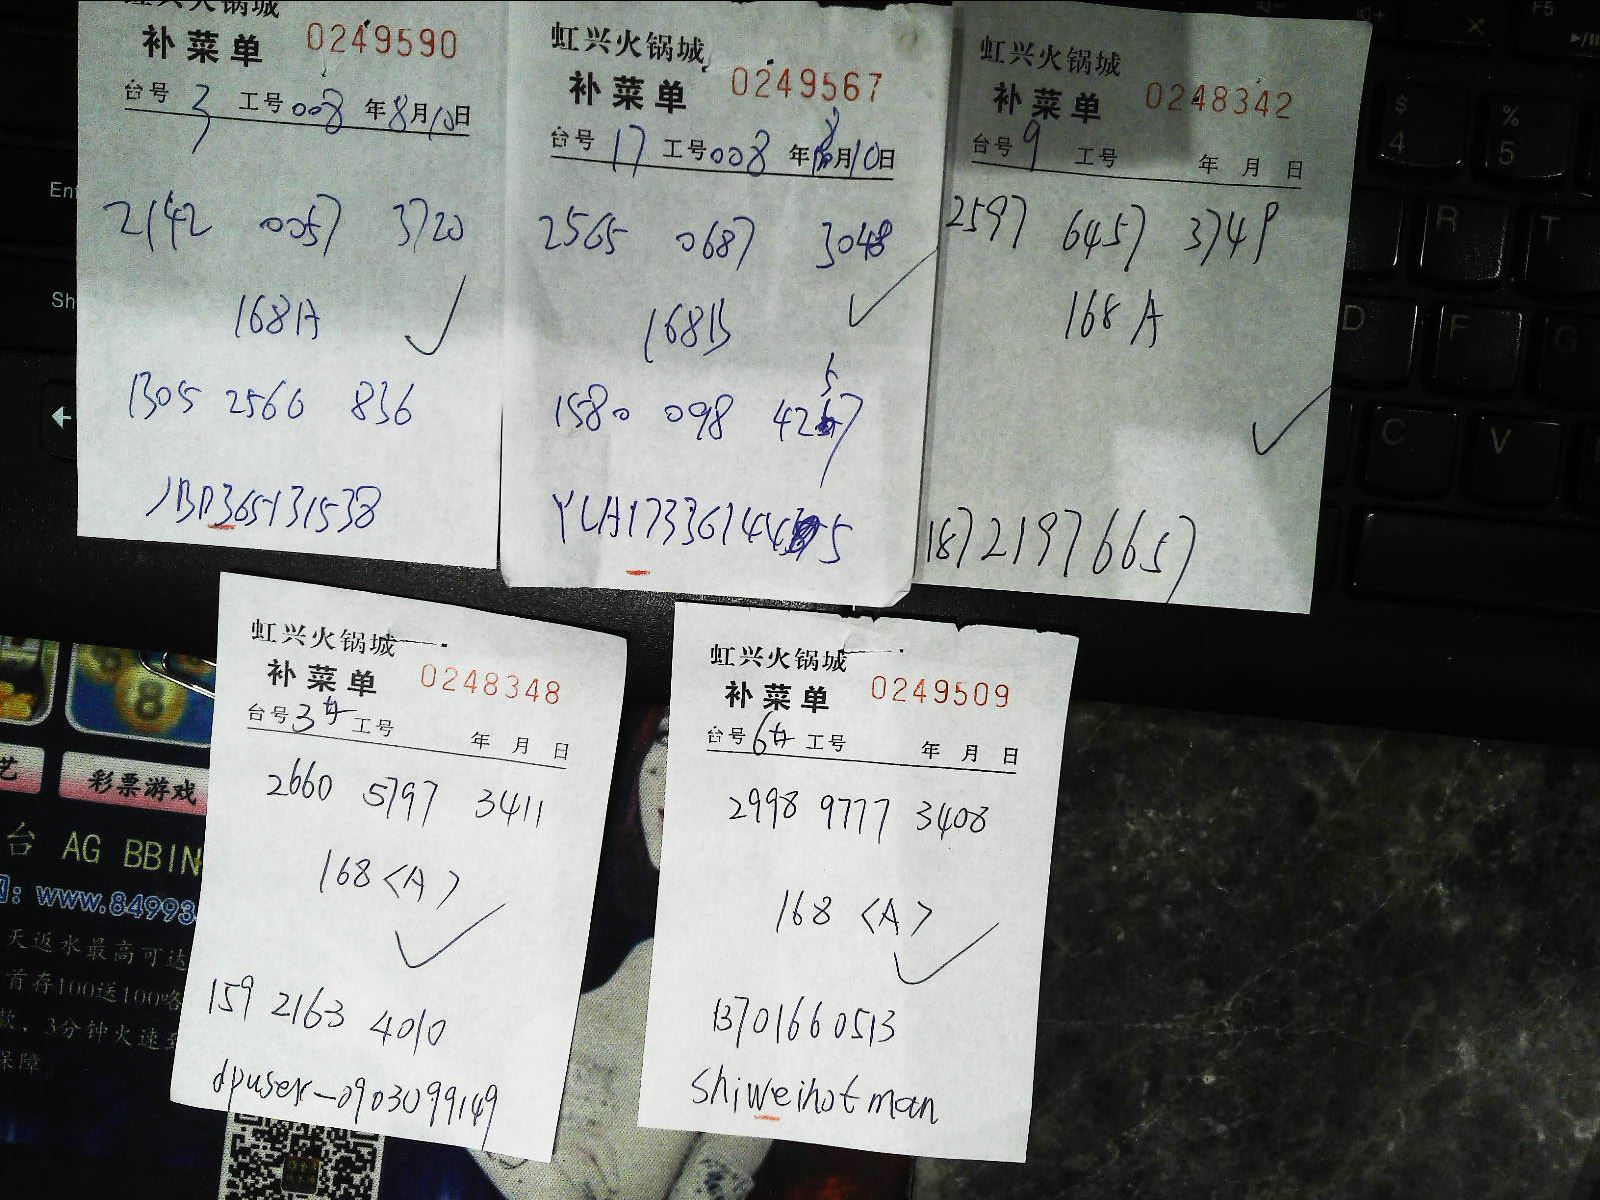 虹兴火锅城
补菜单 0249590
台号 3 工号 008 年 8月10日
2142 0057 3720
168A
1305 2566 836
JBD365131538
虹兴火锅城
补菜单 0249567
台号 17 工号 008 年 8月10日
2565 0687 3048
168B
5
1580 098 4257
虹兴火锅城
补菜单 0248342
台号 9 工号 年 月 日
2597 6457 3749
168 A
18721976657
虹兴火锅城
补菜单 0248348
台号 3 工号 年 月 日
2660 5797 3411
168 <A>
159 2163 4010
dpuser-0903099149
虹兴火锅城
补菜单 0249509
台号 6 工号 年 月 日
2998 9777 3408
168 <A>
13701660513
shiweihotman
Sh
F5
$ 4
% 5
R T
D F G
C V
8
艺
彩票游戏
台 AG BBIN
www.84993
天返水最高可达
首存100送100
3分钟火速
保障